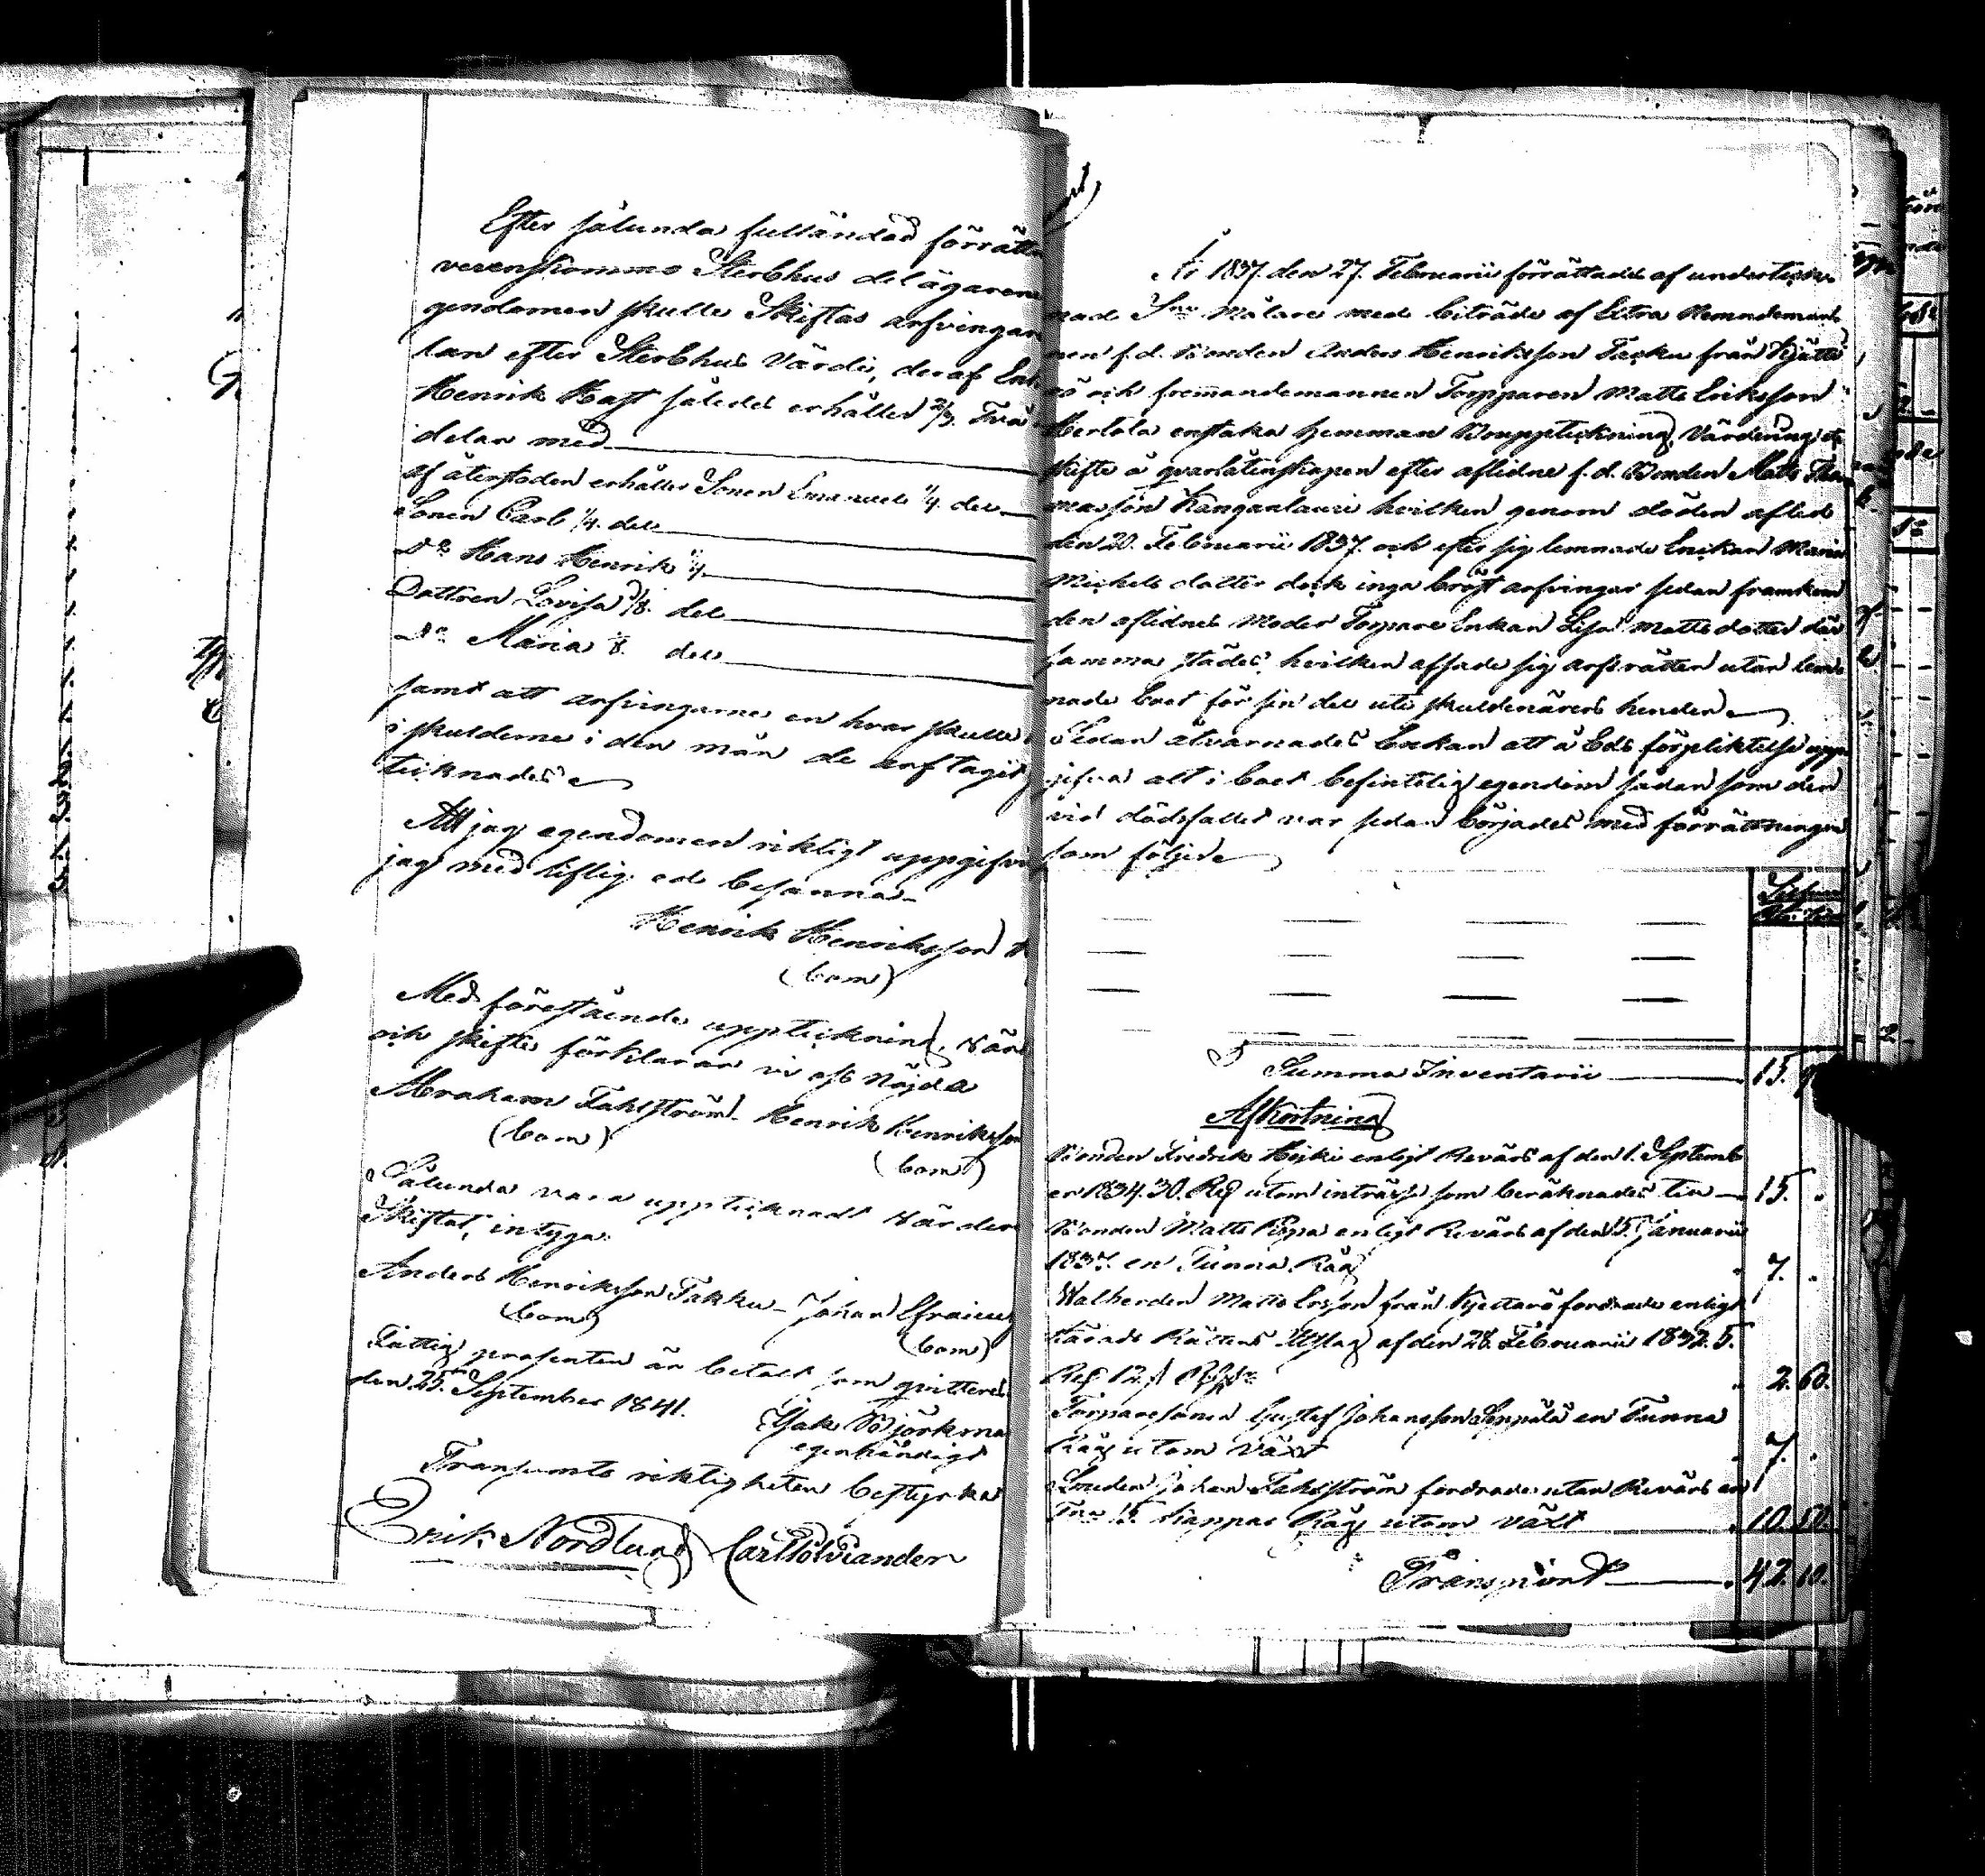 Efter sålunda fulländad förrätt
verenskommo Sterbhus delägaren
gendomen skulle Skiftas arfvingar
lan efter Sterbhus Värdi, deraf Enk
Henrik Hast således erhåller 2/3. Två
delar med
af återstoden erhåller Sonen Emanuel 1/4. del
Sonen Carl 1/4. del
Do Hans Henrik 1/4
Dottren Lovisa 1/8. del
Do Maria 1/8. del
samt att arfvingarne en hvar skulle
i skulderne i den mån de arf tagit
tecknades
Att jag egendomen riktigt uppgifvit
jag med liflig ed besanna
Henrik Henriksson
(bom)
Med förestående uppteckning, vär
och skifte förklarar vi oss nöjda
Abraham Fahlström Henrik Henriksson
(bom) (bom)
Sålunda vara upptecknadt värder
Skiftat, intyga
Anders Henriksson Takku Johan Efraim
(bom) (bom)
Fattig procenten är betalt som qvitteras
den 25 September 1841.
Isak Björkma
egenhändigt
Transumts riktigheten bestyrka
Erik Nordlund Carl Tolviander
År 1837. den 27. Februarii förrättades af underteckn
nad Sne Målare med biträde af Extra Nemndemann
nen f.d. Bonden Anders Henriksson Tacku från Kjätte
rö och fremandemannen Torpparen Matts Eriksson
Mertola enstaka hemman Bouppteckning Värdering
skifte å qvarlåtenskapen efter aflidne f.d. Bonden Matts Tho
masson Kanganlauri hvilken genom döden afled
den 20. Februarii 1837. och efter sig lemnade Enkan Maria
Michels dotter dock inga bröst arfvingar sedan framkom
den aflidnes Moder Torpare Enkan Lisa Matts dotter där
samma städes hvilken afsade sig arfsrätten utan lem
nade boet för sin del uti skuldenärers hender
Sedan åtvarnades Enkan att å Eds förpliktelse upp
gifva alt i boet befintelig egendom sådan som den
vid dödsfallet var sedan börjades med förrättningen
som följer
Summa Inventarii 15.
Afkortning
Bonden Fredrik Hojki enligt Revärs af den 1. Septemb
er 1834. 30. Rd utom inträsse som beräknades till 15.
Bonden Matts Ropa enligt Revärs af den 15. Januarii
1837. en Tunna Råg 7.
Matts Ersson från Kjetterö fordrade enligt
Härads Rättens Utslag af den 28. Februarii 1832. 5.
Rd 12 2. 60.
Torpare sonen Gustaf Johansson Seppälä en Tunna
Råg utom växt 7.
Smeden Johan Fahlström fordrade utan Revärs en
Tna 15 kappar Råg utom växt 10. 50.
Transport 42. 10.